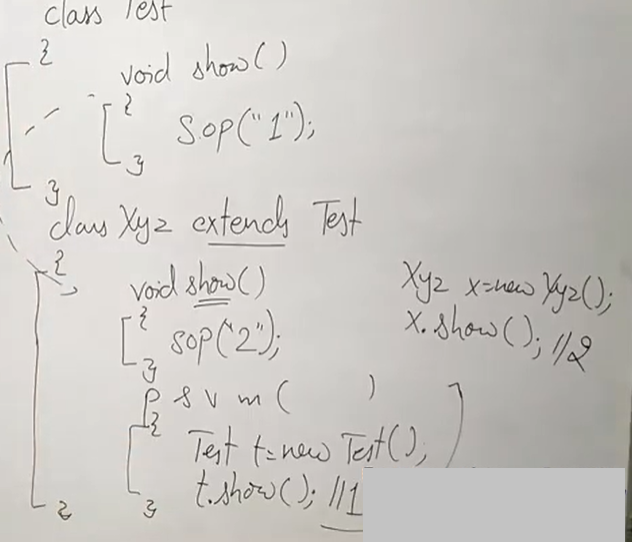 class Test
{
void show()
{
S.o.p("1");
}
}
class Xyz extends Test
{
void show()
{
sop("2");
}
p s v m ( )
{
Test t=new Test();
t.show(); //1
}
}
Xyz x=new Xyz();
x.show(); //2